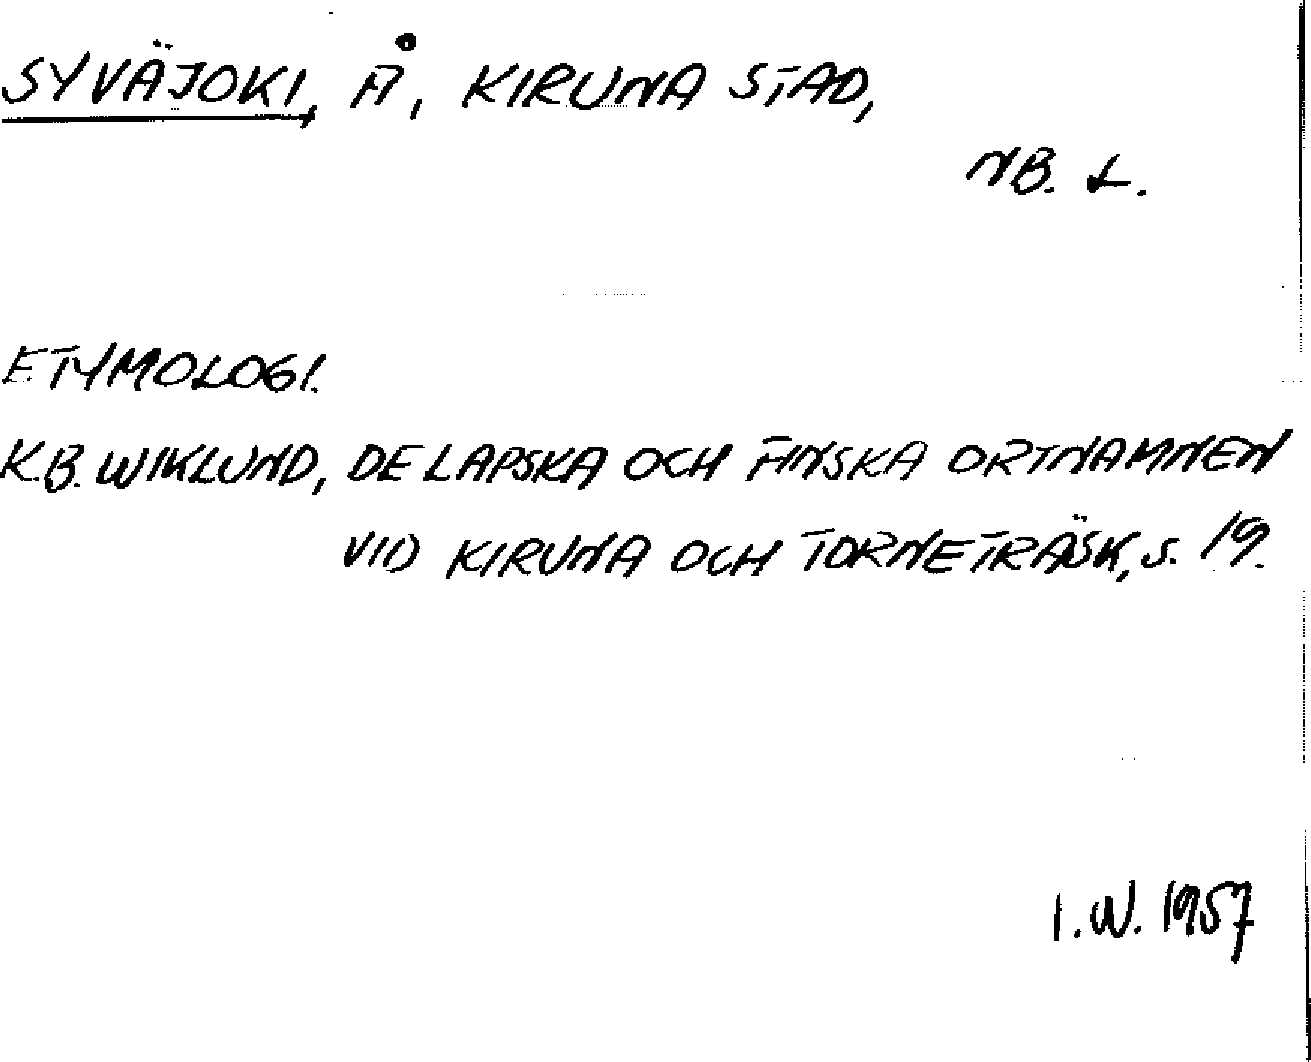 SYVÄJOKI, Å, KIRUNA STAD,
NB. L.
ETYMOLOGI.
K.B. WIKLUND, DE LAPSKA OCH FINSKA ORTNAMNEN
VID KIRUNA OCH TORNETRÄSK, S. 19.
I.W. 1957